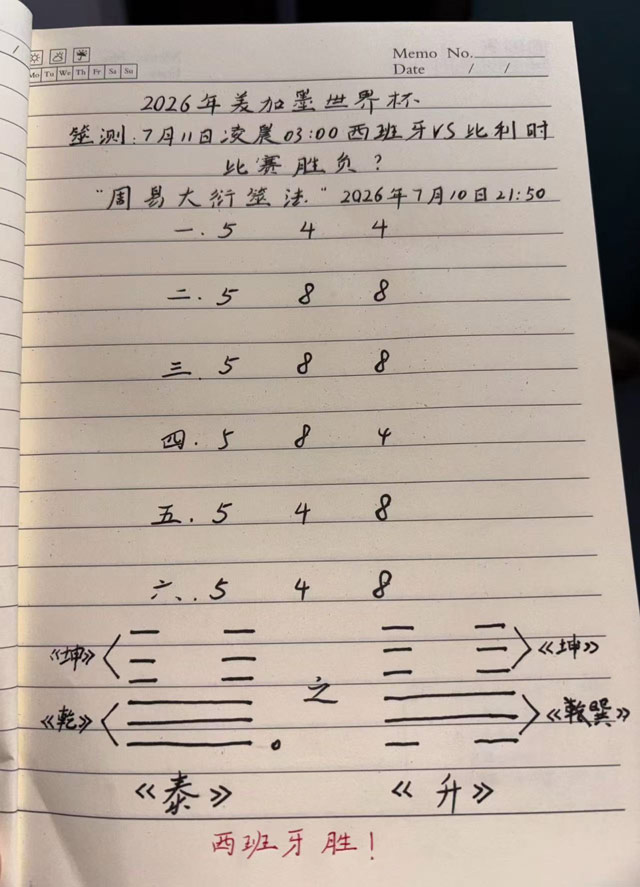 Memo No.
Mo Tu We Th Fr Sa Su
Date / /
2026年美加墨世界杯
筮测:7月11日凌晨03:00西班牙VS比利时
比赛胜负?
"周易大衍筮法." 2026年7月10日21:50
一. 5 4 4
二. 5 8 8
三. 5 8 8
四. 5 8 4
五. 5 4 8
六. 5 4 8
《坤》 之 《坤》
《乾》 《乾巽》
《泰》 《升》
西班牙胜!